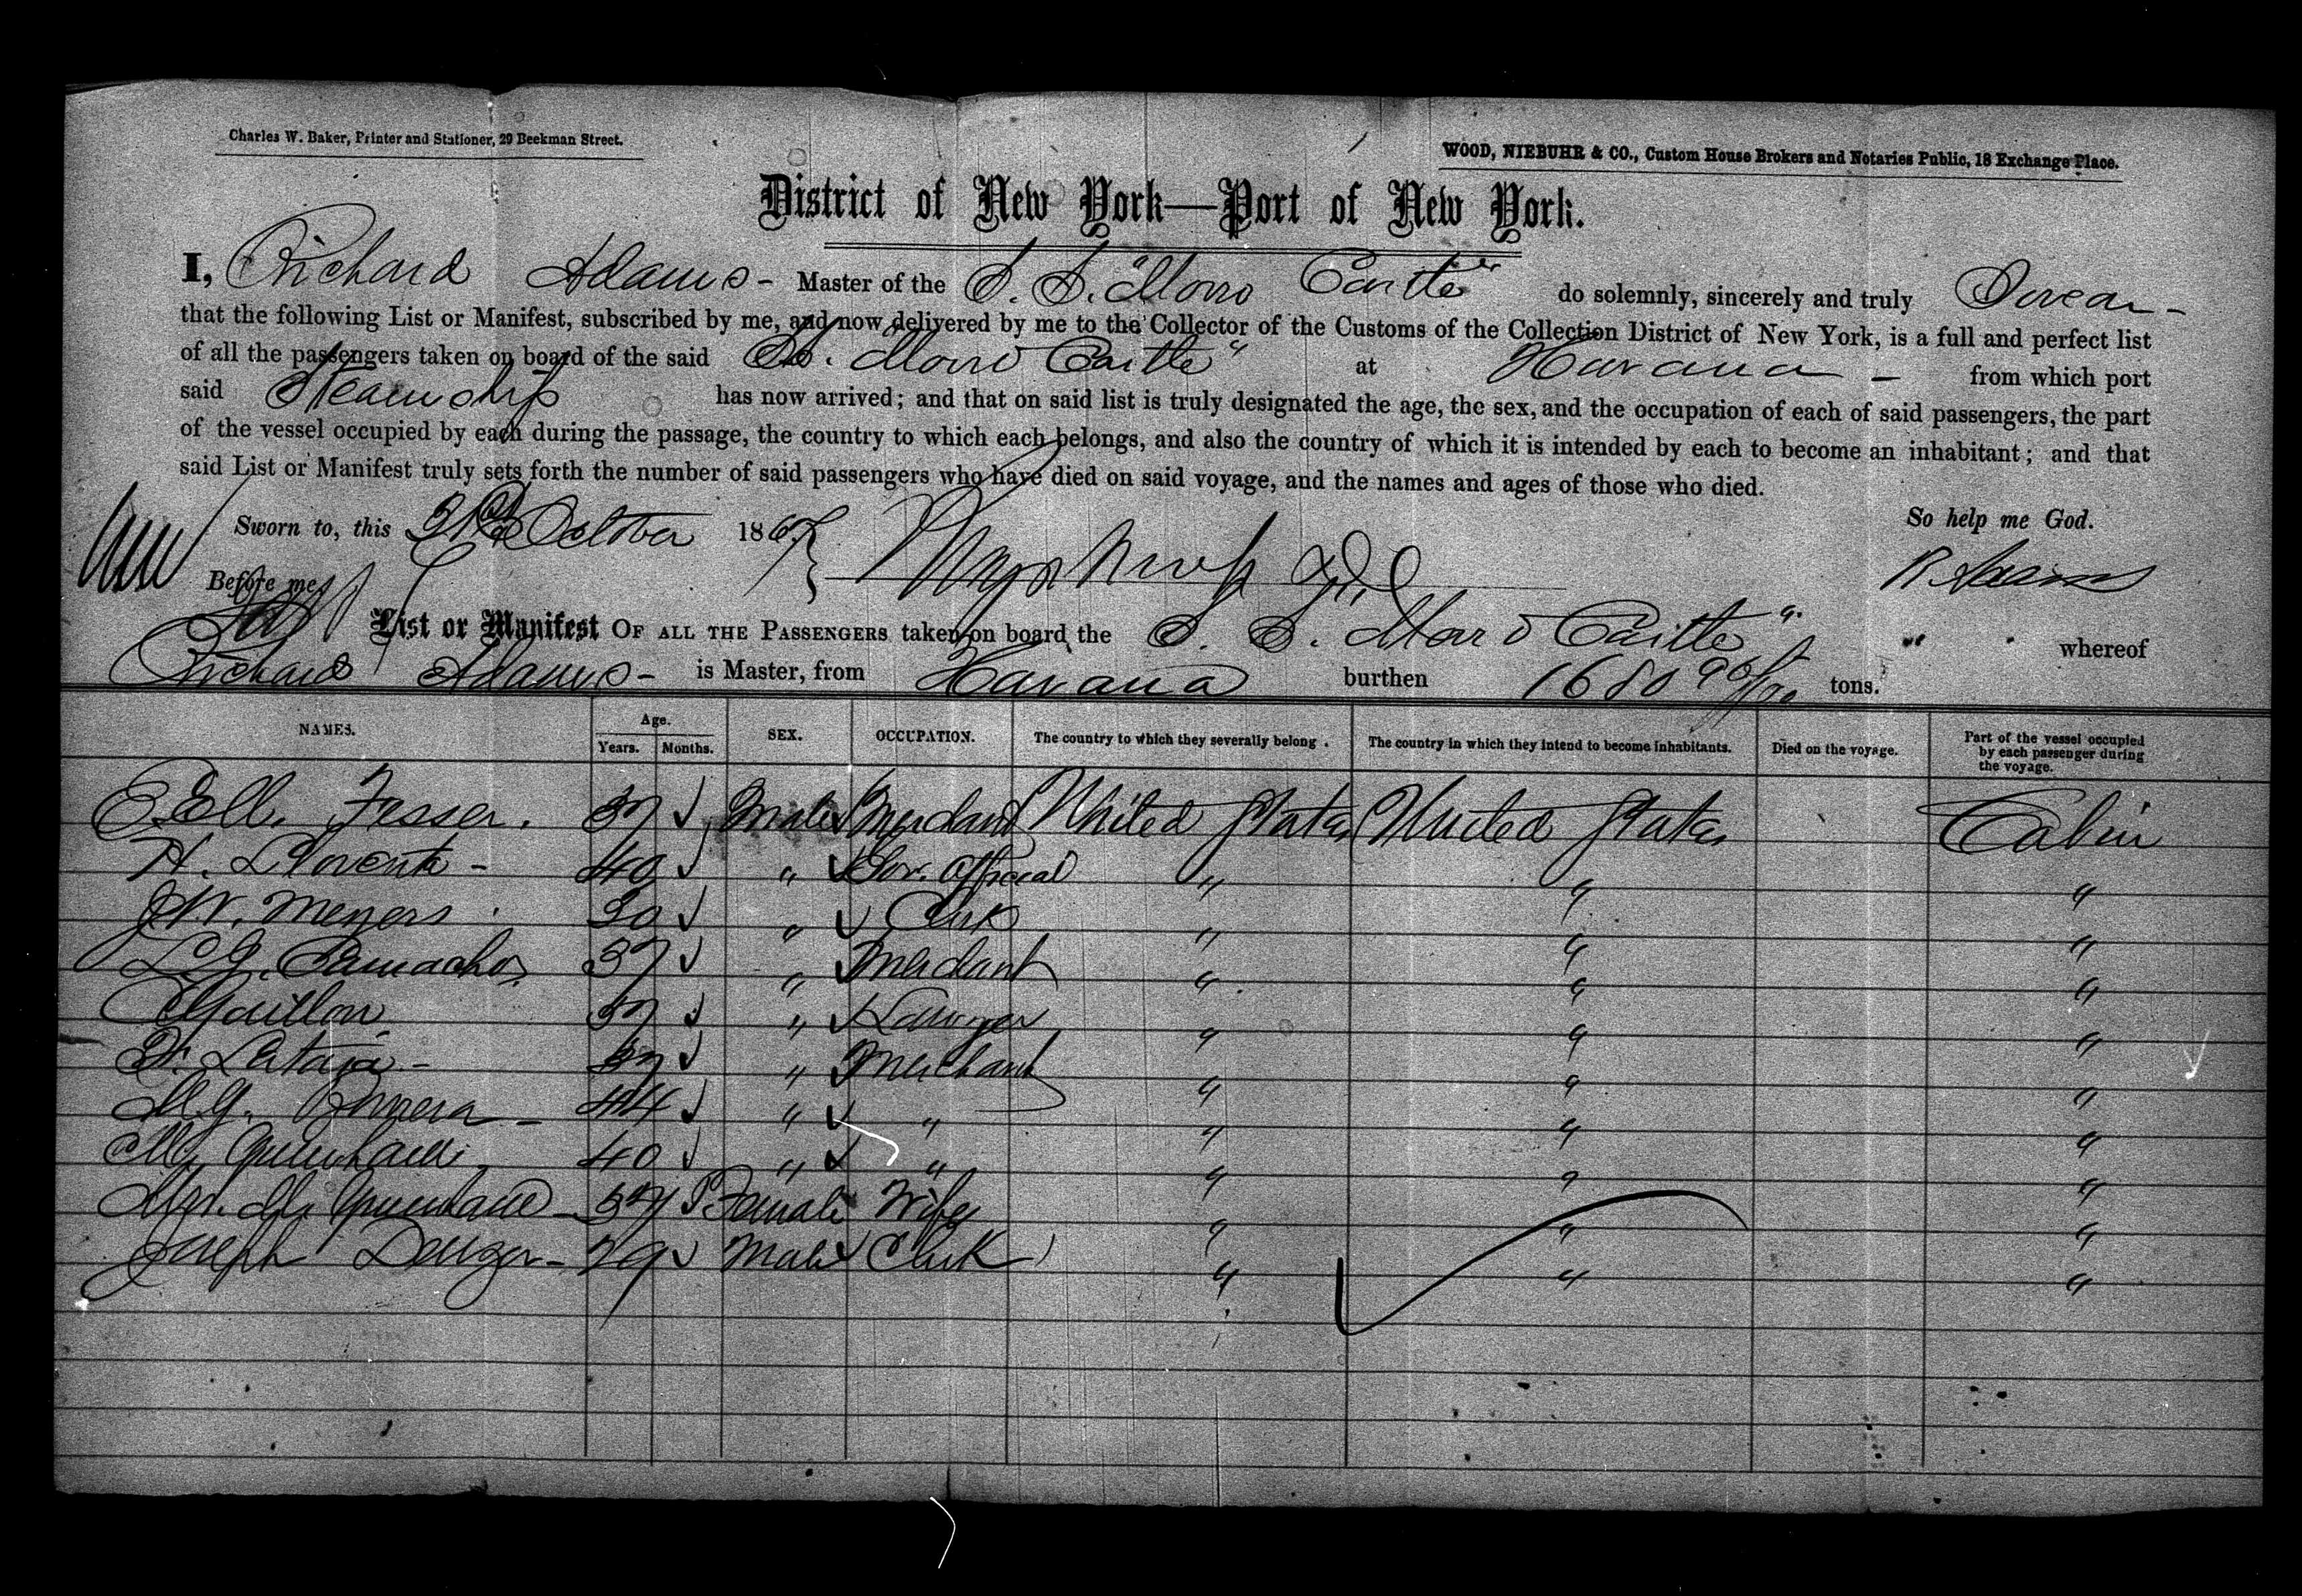 Charles W. Baker, Printer and Stationer, 29 Beekman Street.
WOOD, NIEBUHR & CO., Custom House Brokers and Notaries Public, 18 Exchange Place.
District of New York—Port of New York.
I, Richard Adams - Master of the S. S. "Morro Castle" do solemnly, sincerely and truly Swear -
that the following List or Manifest, subscribed by me, and now delivered by me to the Collector of the Customs of the Collection District of New York, is a full and perfect list
of all the passengers taken on board of the said SS. "Morro Castle" at Havana - from which port
said Steamship has now arrived; and that on said list is truly designated the age, the sex, and the occupation of each of said passengers, the part
of the vessel occupied by each during the passage, the country to which each belongs, and also the country of which it is intended by each to become an inhabitant; and that
said List or Manifest truly sets forth the number of said passengers who have died on said voyage, and the names and ages of those who died.
Sworn to, this 21st October 1867 So help me God.
Before me, R Adams
List or Manifest OF ALL THE PASSENGERS taken on board the S. S. "Morro Castle" whereof
Richard Adams - is Master, from Havana burthen 1680 96/100 tons.
NAMES. Age. Years. Months. SEX. OCCUPATION. The country to which they severally belong. The country in which they intend to become inhabitants. Died on the voyage. Part of the vessel occupied by each passenger during the voyage.
Fesser. 37 Male Merchant United States United States Cabin
H. 40 " Gov. Official " " "
J.W. Meyers 30 " Clerk " " "
L.G. Camacho 37 " Merchant " " "
37 " Lawyer " " "
" Merchant " " "
M.G. 44 " " " " "
M. 40 " " " " "
Mrs. M. Female Wife " " "
Joseph 29 Male Clerk " " "